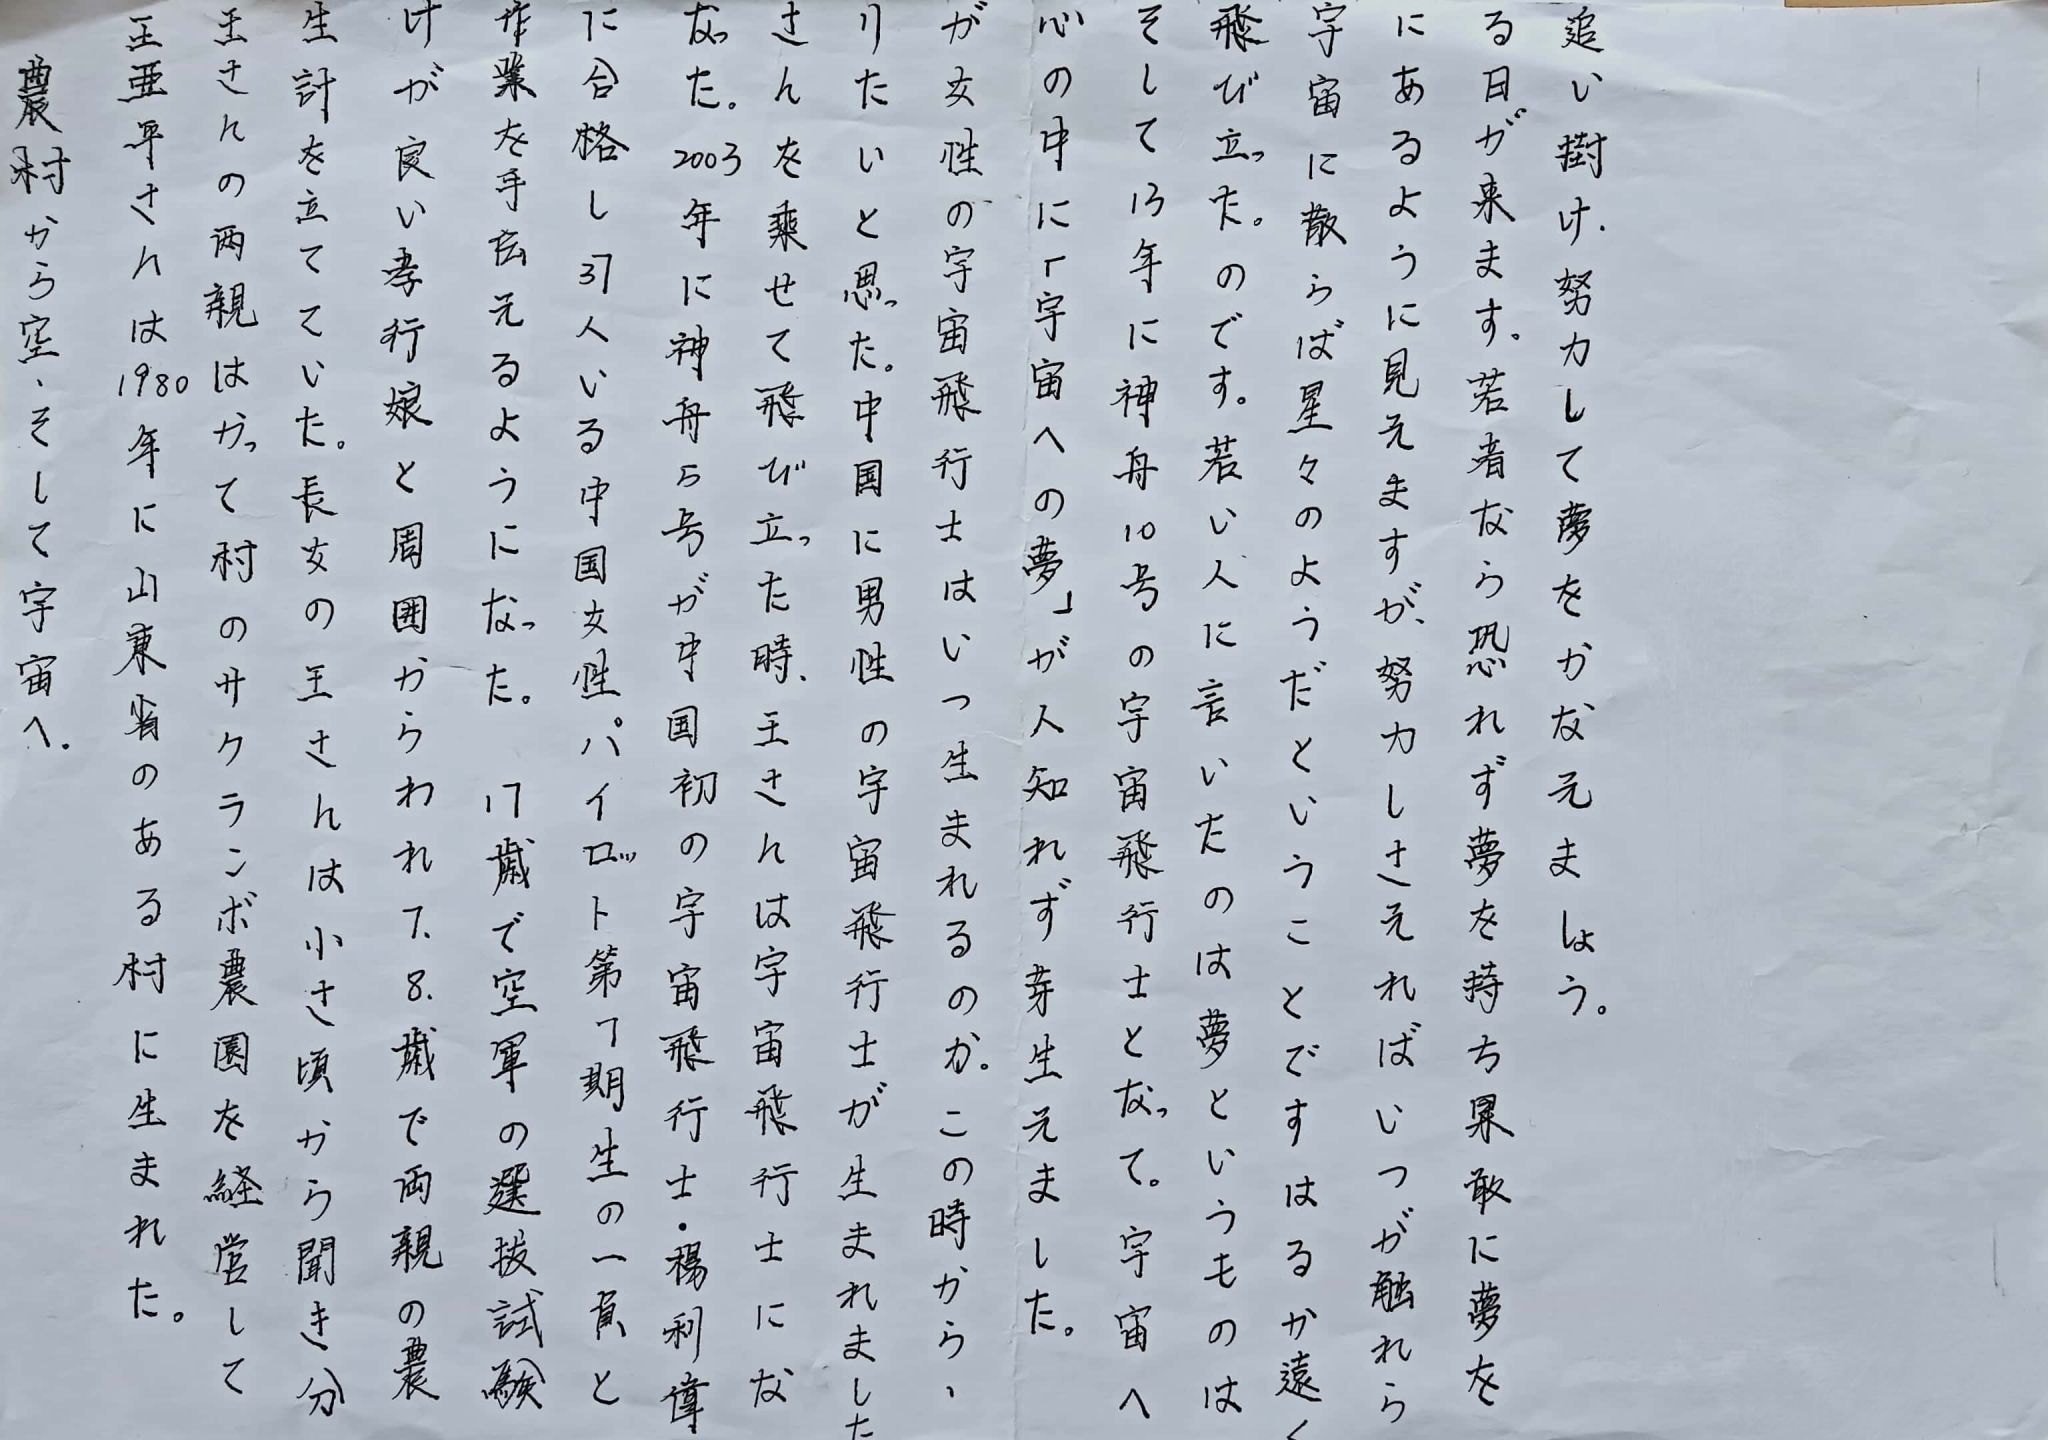 農村から空、そして宇宙へ。
王亜平さんは1980年に山東省のある村に生まれた。
王さんの両親はかって村のサクランボ農園を経営して
生計を立てていた。長女の王さんは小さ頃から聞き分
けが良い孝行娘と周囲からわれ7、8、歳で両親の農
作業を手伝えるようになった。 17歳で空軍の選抜試験
に合格し37人いる中国女性パイロット第7期生の一員と
なった。2003年に神舟5号が中国初の宇宙飛行士・楊利偉
さんを乗せて飛び立った時、王さんは宇宙飛行士にな
りたいと思った。中国に男性の宇宙飛行士が生まれました
が女性の宇宙飛行士はいつ生まれるのか。この時から、
心の中に「宇宙への夢」が人知れず芽生えました。
そして13年に神舟10号の宇宙飛行士となって。宇宙へ
飛び立ったのです。若い人に言いたのは夢というものは
宇宙に散らば星々のようだということですはるか遠く
にあるように見えますが、努力しさえればいつが触れら
る日が来ます。若者なら恐れず夢を持ち果敢に夢を
追い樹け、努力して夢をかなえましょう。